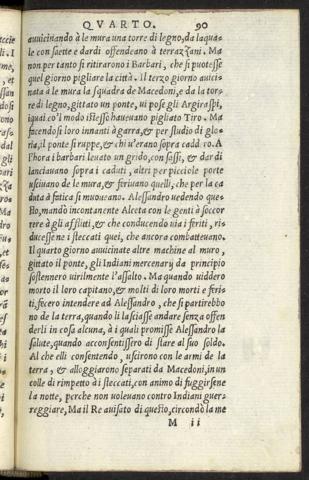 QVARTO. 90
auuicinando à le mura una torre di legno, da la qua-
le con saette e dardi offendeano à terrazzani. Ma
non per tanto si ritirarono i Barbari, che si potesse
quel giorno pigliare la città. Il terzo giorno auici-
nata à le mura la squadra de Macedoni, e da la tor-
re di legno, gittato un ponte, ui pose gli Argiraspi,
i quai co'l modo istesso haueuano pigliato Tiro. Ma
facendosi loro innanti à garra, & per studio di glo-
ria, il ponte si ruppe, & chi u'erano sopra caddero. A
l'hora i barbari leuato un grido, con sassi, & dardi
lanciauano sopra i caduti, altri per picciole porte
usciuano de le mura, & feriuano quelli, che per la ca
duta à fatica si moueuano. Alessandro uedendo que-
sto, mandò incontanente Alceta con le genti à soccor
rere à gli afflitti, & che conducendo uia i feriti, ri-
ducessene i steccati quei, che ancora combatteuano.
Il quarto giorno auuicinate altre machine al muro,
gitato il ponte, gli Indiani mercenarij da principio
sostennero uirilmente l'assalto. Ma quando uiddero
morto il loro capitano, & molti di loro morti e feri-
ti, fecero intendere ad Alessandro, che si partirebbo
no de la terra, quando li lasciasse andare senza offen
derli in cosa alcuna, à i quali promisse Alessandro la
salute, quando acconsentissero di stare al suo soldo.
Al che elli consentendo, uscirono con le armi de la
terra, & alloggiarono separati da Macedoni, in un
colle di rimpetto à i steccati, con animo di fuggirsene
la notte, perche non uoleuano contro Indiani guer-
reggiare, Ma il Re auisato di questo, circondò la me
M ii